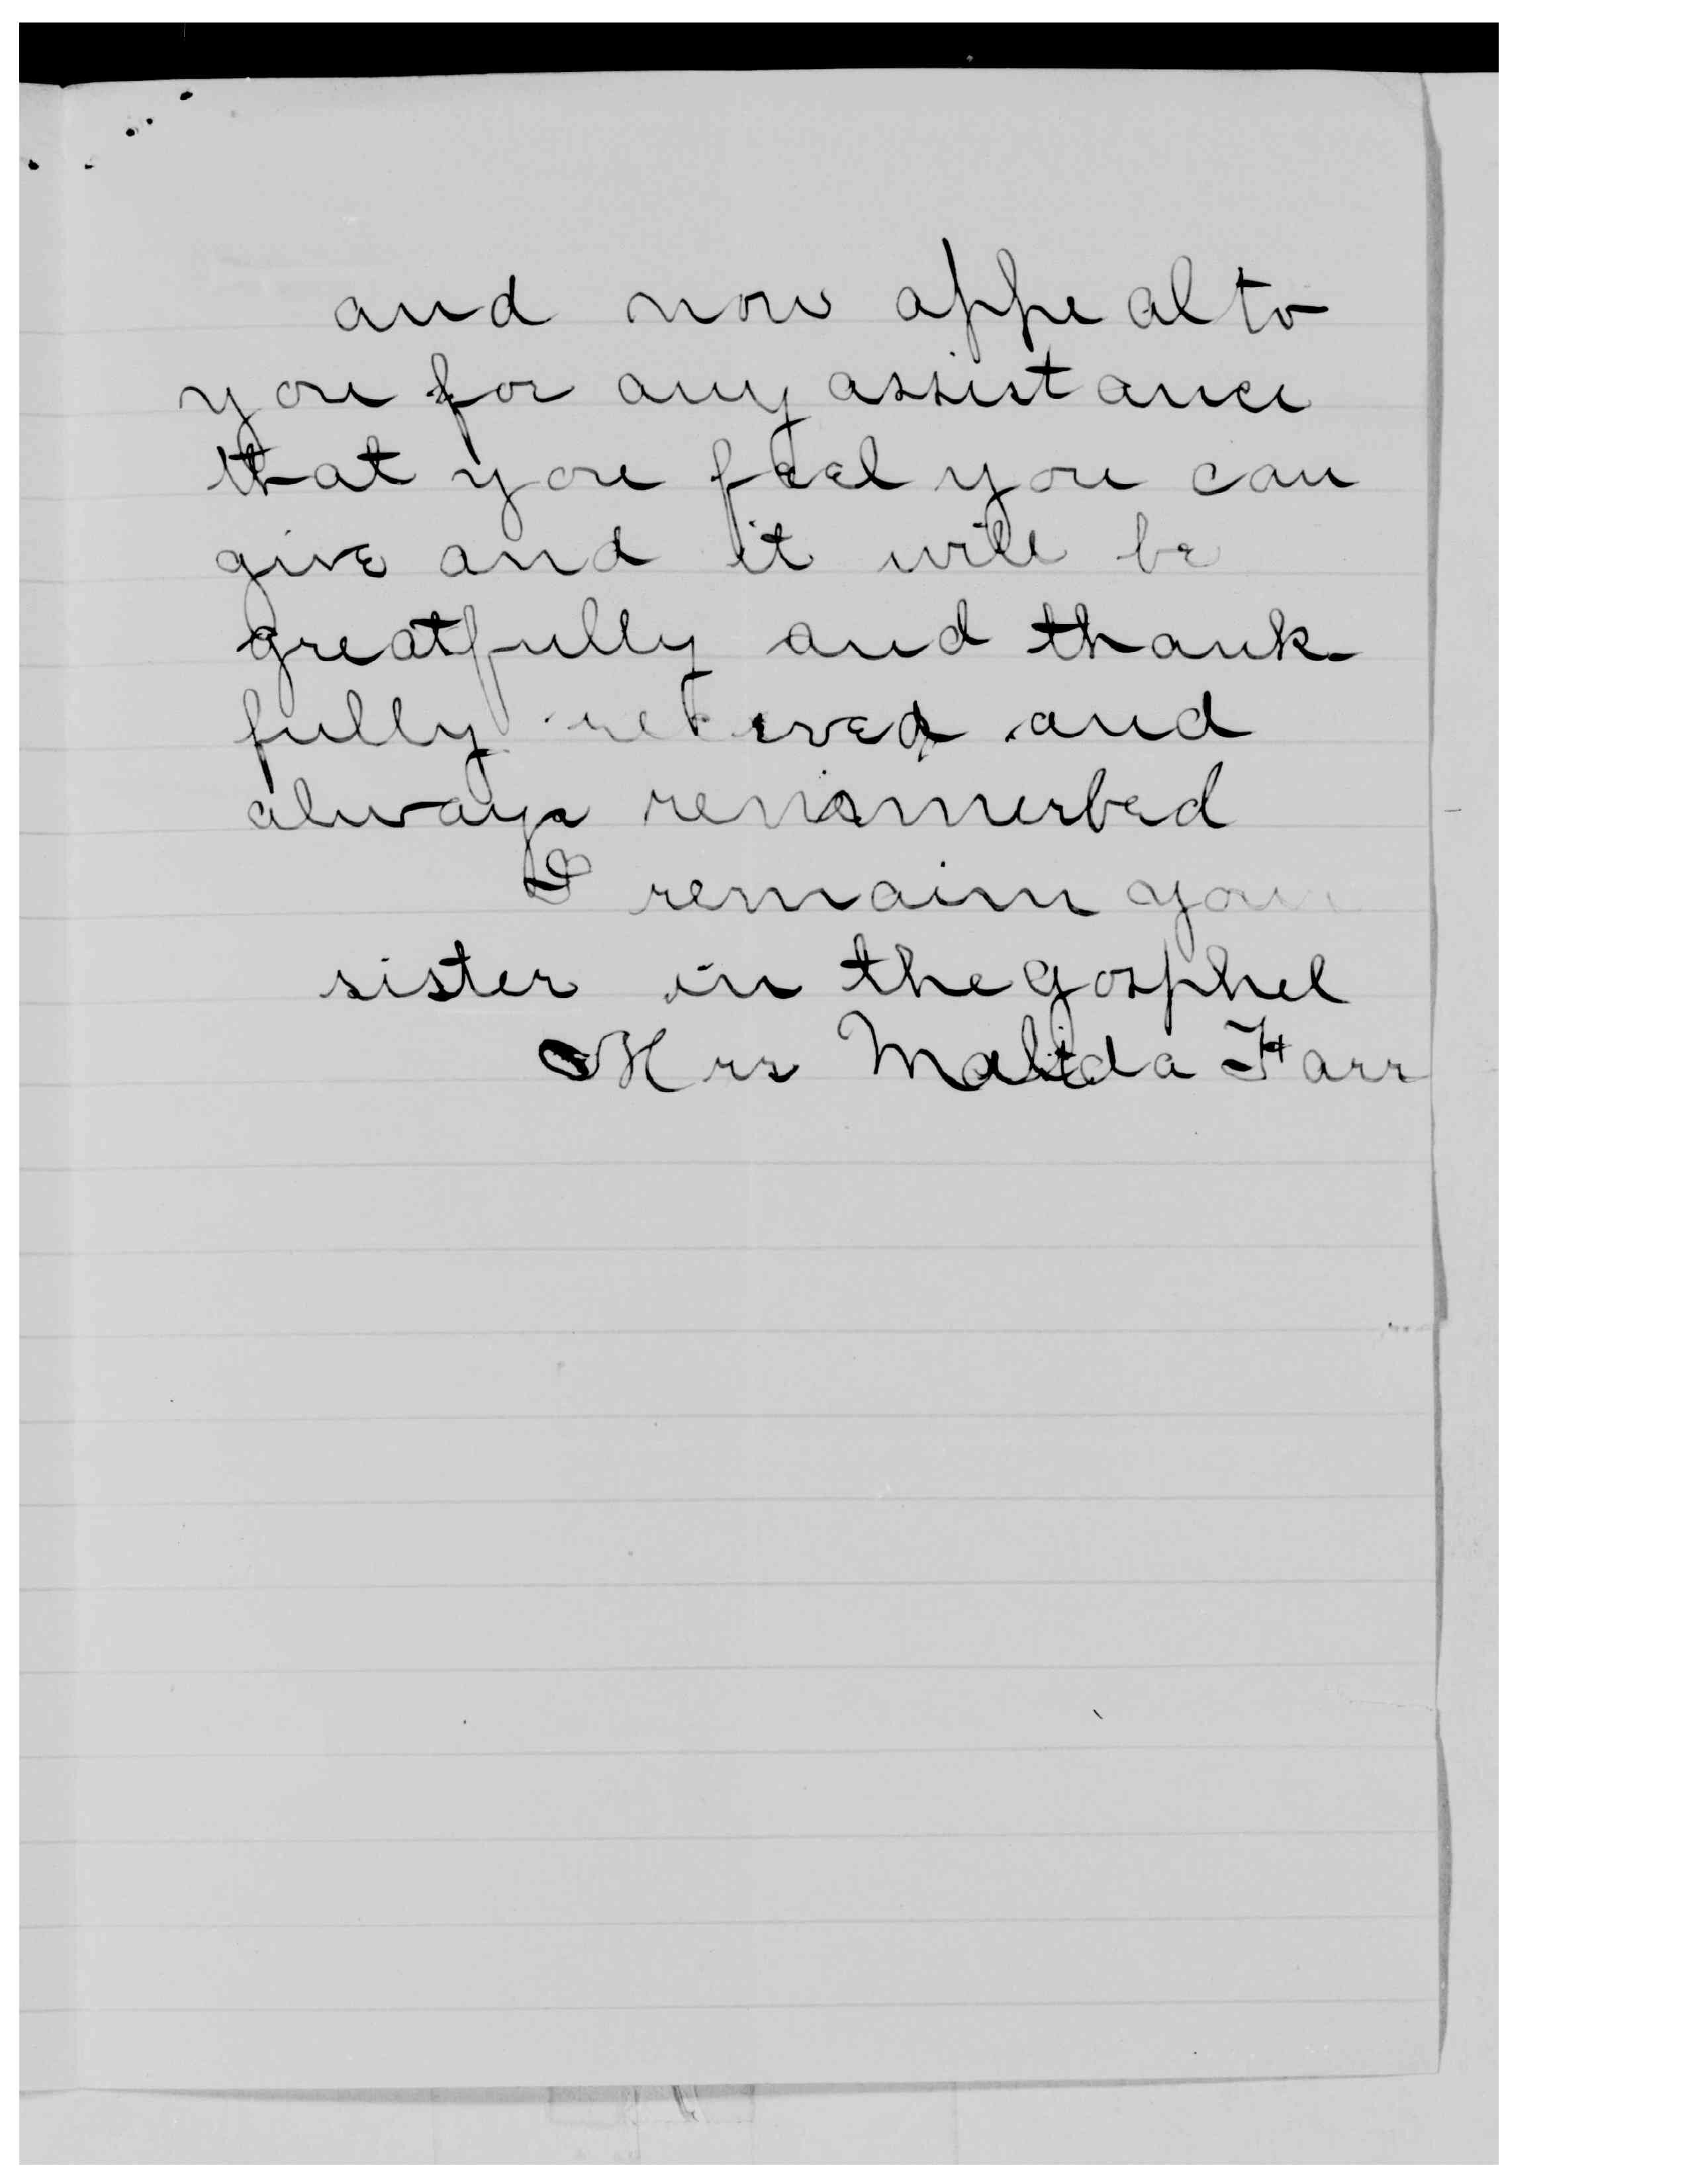 and now appeal to
you for any assistance
that you feel you can
give and it will be
greatfully and thank-
fully recieved and
always renmmerbed
I remain your
sister in the gosphel
Mrs Malida Farr